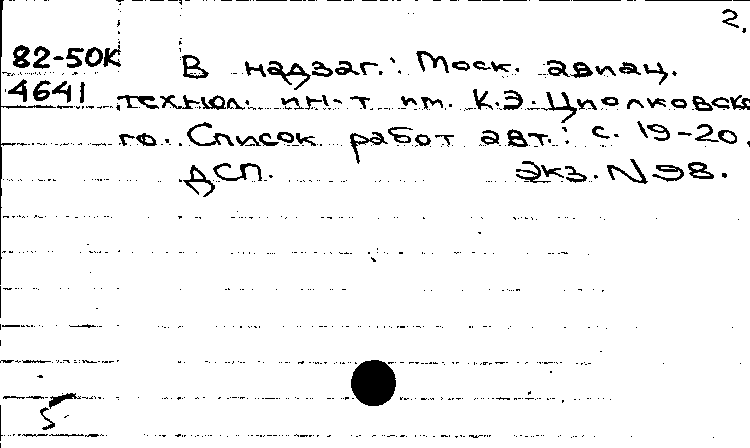 2.
82-50К
4641
В надзаг.: Моск. авиац.
технол. ин-т им. К.Э. Циолковско
го. Список работ авт.: с. 19-20.
ДСП. Экз. N 98.
5